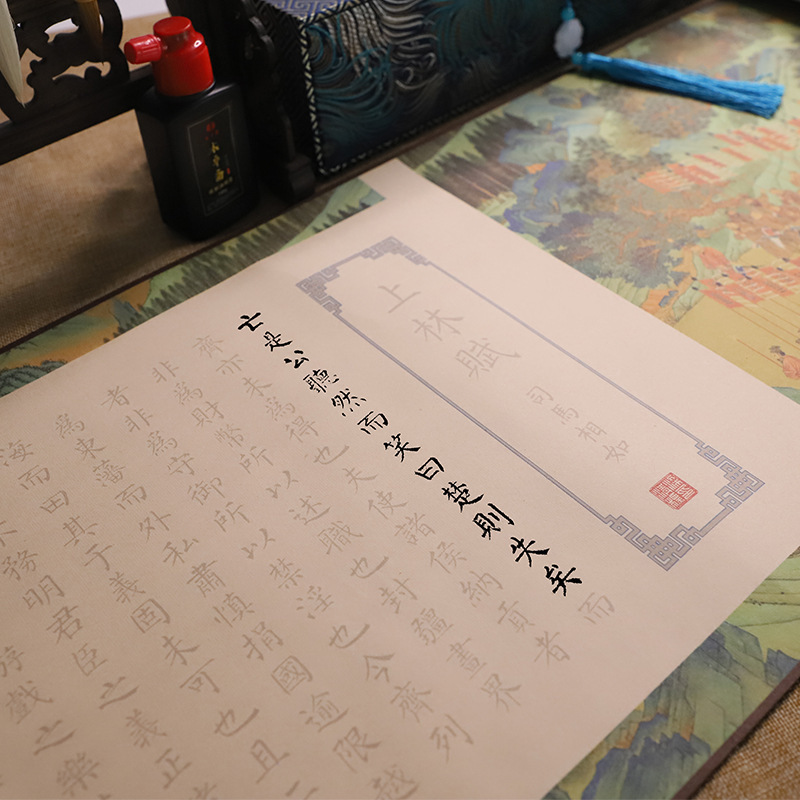 上林賦
司馬相如
亡是公聽然而笑曰楚則失矣而
齊亦未為得也夫使諸侯納貢者
非為財幣所以述職也封疆畫界
者非為守御所以禁淫也今齊列
為東藩而外私肅慎捐國逾限越
海而田其于義固未可也且
務明君臣之義正
戲之樂